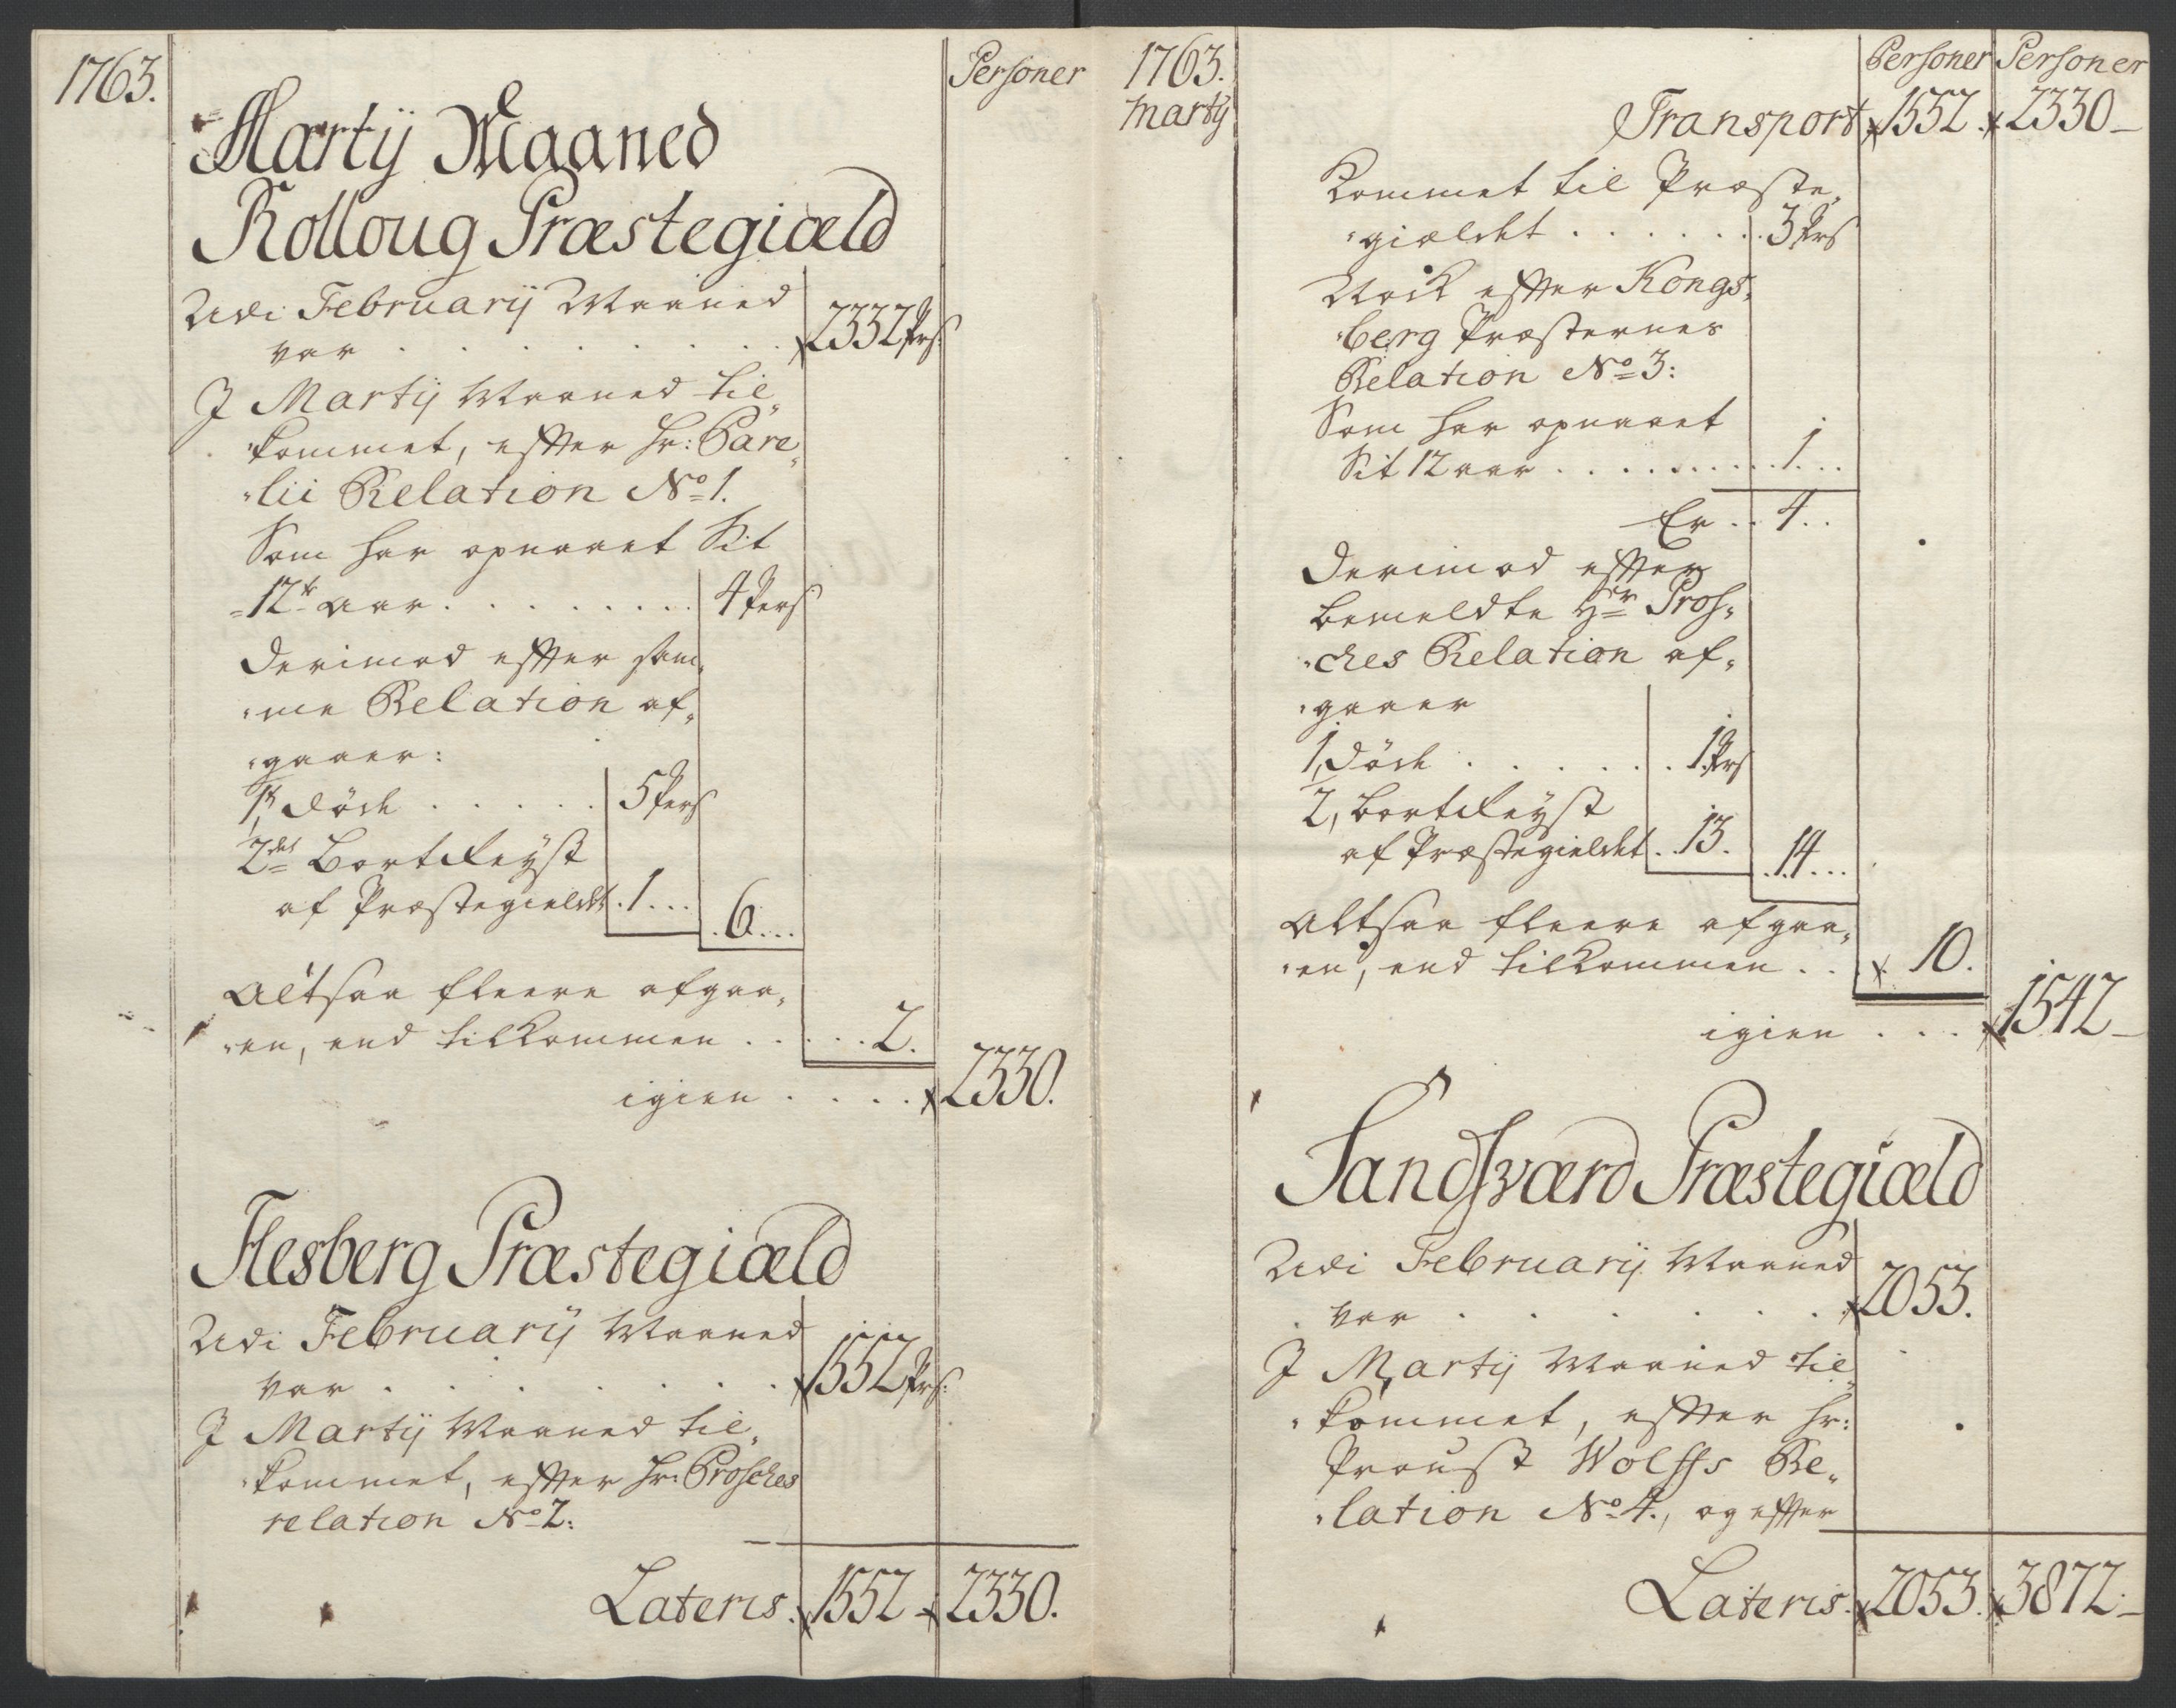 1763.
Personer
Martij Maaned
Rolloug Præstegiæld
Udi Februarij Maaned
var . . . . . . . 2332 Prs:
J Martij Maaned til„
„kommet, efter Hr: Pare„
„lii Relation No 1.
Som har opnaaet Sit
12te Aar . . . . . . . 4 Pers:
Derimod efter sam„
„me Relation af„
„gaaer:
1, døde . . . . . 5 Pers
2det Bortreyst
af Præstegieldet . 1 . . . 6 . . .
Altsaa fleere afgaa„
„en, end tilkommen . . . . . 2.
igien . . . . 2330.
Flesberg Præstegiæld
Udi Februarij Maaned
var . . . . . . . 1552 Prs:
J Martij Maaned til„
„kommet, efter Hr: Prosches
relation No 2:
Lateris. 1552 2330.
1763.
Martij
Personer Personer
Transport 1552. 2330
Kommet til Præste„
„giældet . . . . . . 3 Prs
Nock efter Kongs„
„berg Præsternes
Relation No 3:
Som har opnaaet
Sit 12 aar . . . . . . . . 1 . . .
Er . . 4 . .
Derimod efter
bemeldte Hr Pros„
„ches Relation af„
„gaaer
1, døde . . . . . . 1 Prs
2, bortreyst
af Præstegieldet . 13. 14 . . .
Altsaa fleere afgaa„
„en, end tilkommen . . . 10.
igien . . . 1542
Sandsværd Præstegiæld
Udi Februarij Maaned
var . . . . . . . 2053.
J Martij Maaned til„
„kommet, efter Hr:
Proust Wolffs Re„
„lation No 4., og efter
Lateris. 2053. 3872.